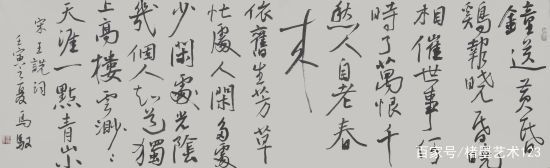 鐘送黄昏
鷄報曉昏
相催世事
時了萬恨千
愁人自老春
来
依舊生芳草
忙處人閑多處
少閑處光陰
幾個人知道獨
上高樓雲渺〻
天涯一點青山小
宋王詵詞
壬寅之夏馬馭
百家号/楮墨艺术123